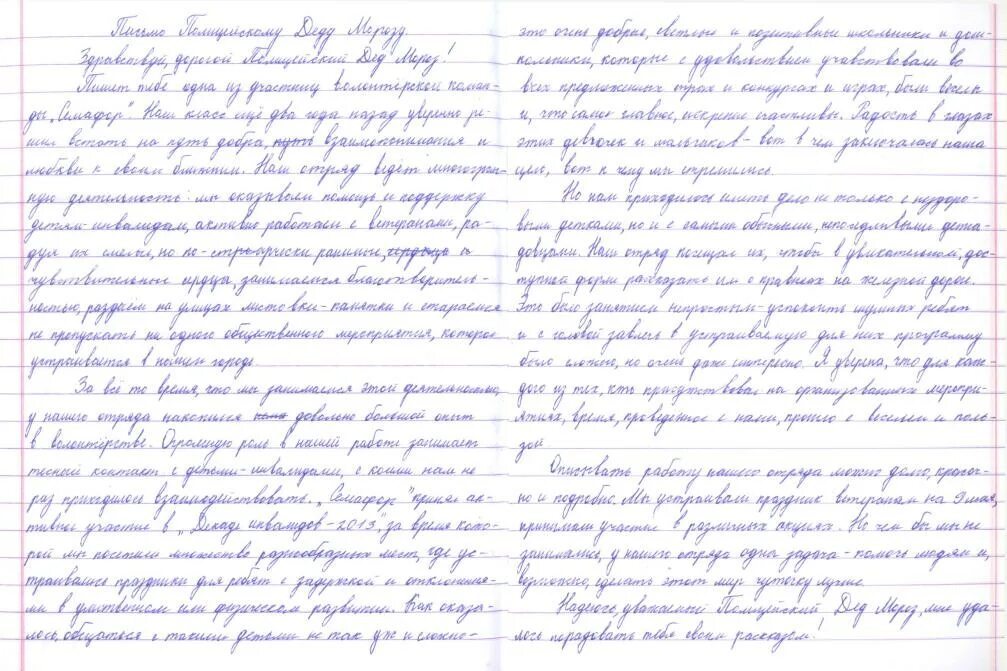 Письмо Полицейскому Деду Морозу.
Здравствуй, дорогой Полицейский Дед Мороз!
Пишет тебе одна из участниц волонтёрской коман-
ды „Семафор". Наш класс ещё два года назад уверенно ре-
шил встать на путь добра, путь взаимопонимания и
любви к своим ближним. Наш отряд ведёт многогран-
ную деятельность: мы оказываем помощь и поддержку
детям-инвалидам, активно работаем с ветеранами, ра-
дуя их смелые, но
чувствительные сердца, занимаемся благотворитель-
ностью, раздаём на улицах листовки-памятки и стараемся
не пропускать ни одного общественного мероприятия, которое
устраивается в нашем городе.
За всё то время, что мы занимаемся этой деятельностью,
у нашего отряда накопился довольно большой опыт
в волонтёрстве. Огромную роль в нашей работе занимает
тесный контакт с детьми-инвалидами, с коими нам не
раз приходилось взаимодействовать. „Семафор" принял ак-
тивное участие в „Декаде инвалидов-2013", за время кото-
рой мы посетили множество разнообразных мест, где ус-
траивались праздники для ребят с задержкой и отклонения-
ми в умственном или физическом развитии. Как оказа-
лось, общаться с такими детьми не так уж и сложно-
это очень добрые, светлые и позитивные школьники и дош-
кольники, которые с удовольствием учавствовали во
всех предложенных играх и конкурсах и играх, были веселы
и, что самое главное, искренне счастливы. Радость в глазах
этих девчонок и мальчиков - вот в чем заключалась наша
цель, вот к чему мы стремились.
Но нам приходилось иметь дело не только с нездоро-
выми детками, но и с самыми обычными, непоседливыми детса-
довцами. Наш отряд посещал их, чтобы в увлекательной, дос-
тупной форме рассказать им о правилах на железной дороге.
Это было занятием непростым - успокоить шумных ребят
и с головой завлечь в устраиваемую для них программу
было сложно, но очень даже интересно. Я уверена, что для каж-
дого из тех, кто присутствовал на организованных меропри-
ятиях, время, проведенное с нами, прошло с весельем и поль-
зой.
Описывать работу нашего отряда можно долго, красоч-
но и подробно. Мы устраивали праздник ветеранам на 9 мая,
принимали участие в различных акциях. Но чем бы мы не
занимались, у нашего отряда одна задача - помочь людям и,
возможно, сделать этот мир чуточку лучше.
Надеюсь, уважаемый Полицейский Дед Мороз, мне уда-
лось порадовать тебя своим рассказом!